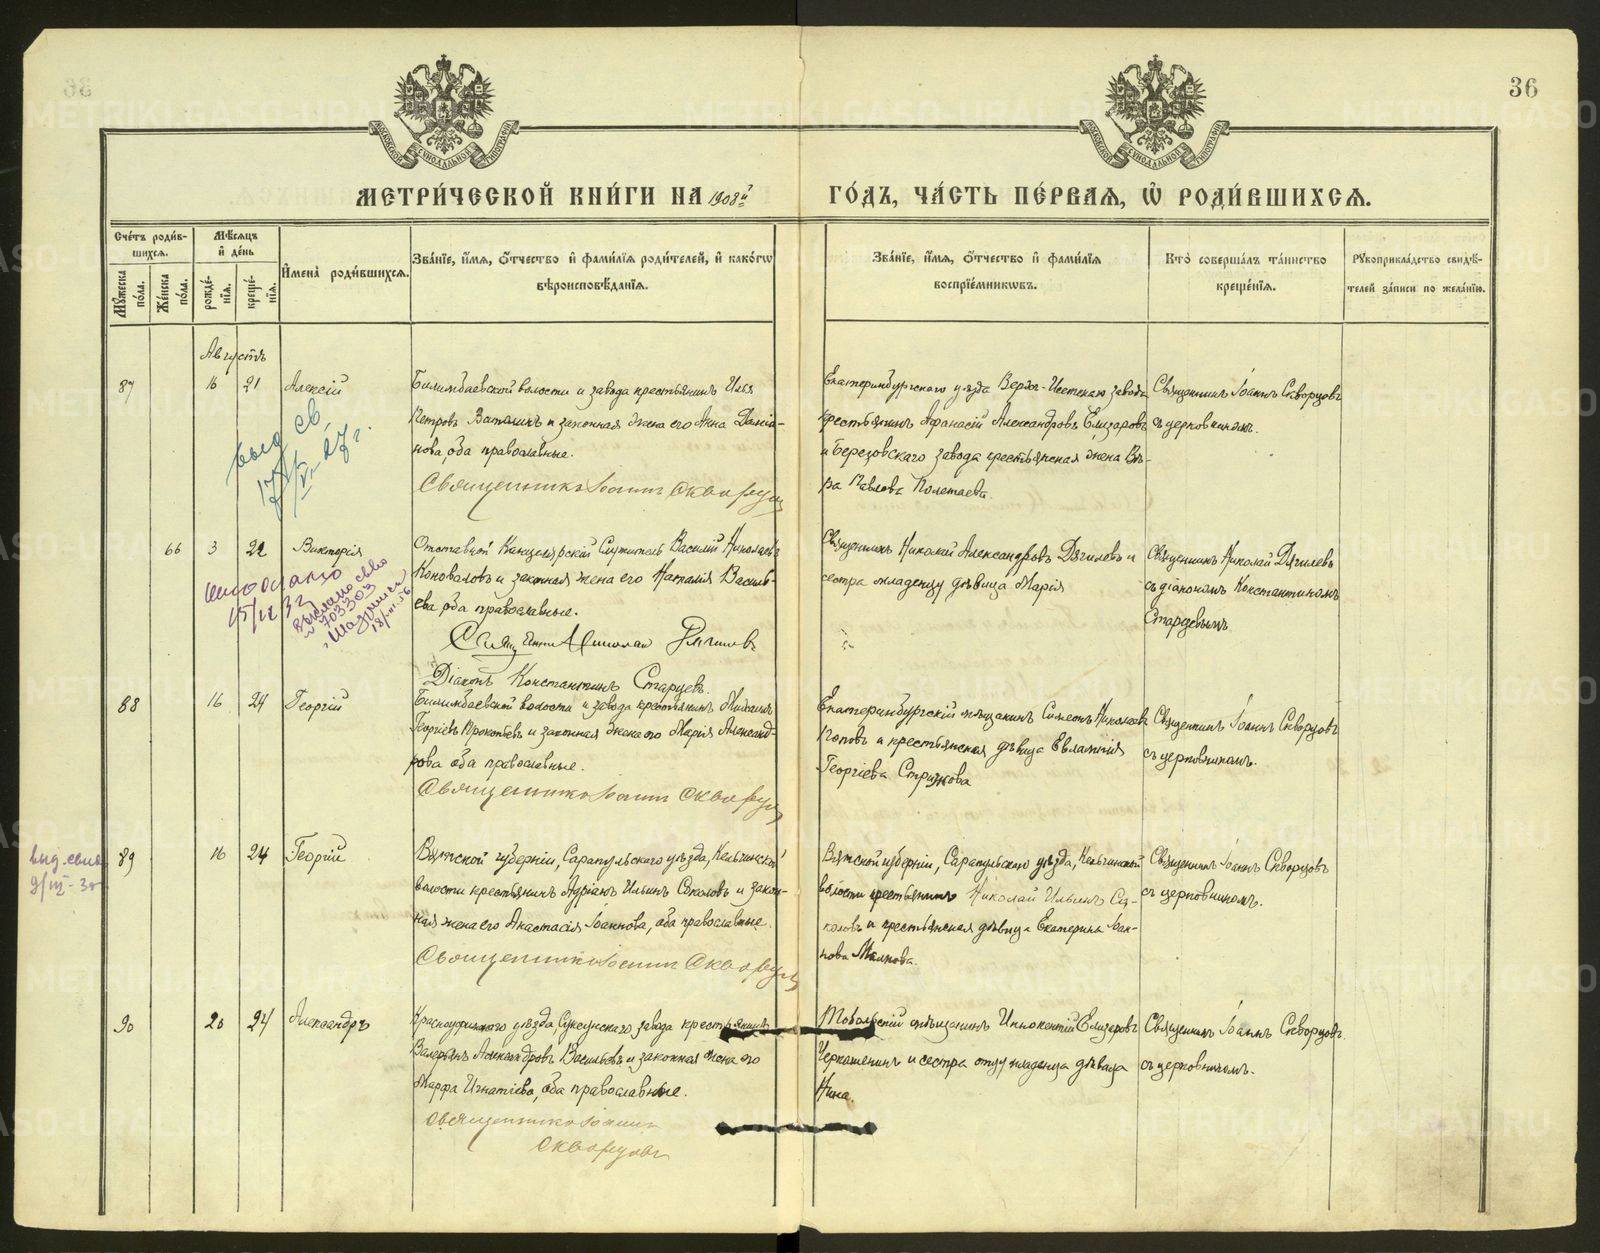 36
МЕТРИ́ЧЕСКОЙ КНИ́ГИ НА 1908й ГО́ДЪ, ЧА́СТЬ ПЕ́РВАЯ, Ѡ РОДИ́ВШИХСѦ.
Счетъ роди́в-
шихсѧ.
Мꙋжеска по́ла.
Же́нска по́ла.
Мѣсѧцъ и де́нь
рожде́-
нїѧ.
креще́-
нїѧ.
Имена̀ роди́вшихсѧ.
Зва́нїе, имѧ, ѻтчество и фами́лїѧ роди́телей, и како́гѡ
вѣроисповѣданїѧ.
Зва́нїе, имѧ, ѻтчество и фами́лїѧ
воспрїе́мниковъ.
Кто̀ соверша́лъ та́инство
креще́нїѧ.
Рꙋкоприкла́дство свидѣ́-
телей за́писи по жела́нїю.
Августъ
87 16 21 Алексій
Билимбаевской волости и завода крестьянинъ Илья
Петровъ и законная жена его Анна
нова, оба православные.
Священникъ Іоаннъ Скворцовъ
Екатеринбургскаго уѣзда Верхъ-Исетскаго завода
крестьянинъ Афанасій Александровъ Елизаровъ
и Березовскаго завода крестьянская жена Вѣ-
ра Павлова Полетаева.
Священникъ Іоаннъ Скворцовъ
съ церковникомъ.
выд св.
17/VI-27 г.
66 3 22 Викторія
Отставной Канцелярскій Служитель Василій Николаевъ
Коноваловъ и законная жена его Наталія Василь-
ева, оба православные.
Священникъ Николай Дягилевъ
Діаконъ Константинъ Старцевъ.
Священникъ Николай Александровъ Дягилевъ и
сестра младенцу дѣвица Марія
Священникъ Николай Дягилевъ
съ діакономъ Константиномъ
Старцевымъ
88 16 24 Георгій
Билимбаевской волости и завода крестьянинъ
Георгіевъ Прокопьевъ и законная жена его Марія Александ-
рова оба православные.
Священникъ Іоаннъ Скворцовъ
Екатеринбургскій мѣщанинъ Симеонъ Николаевъ
Поповъ и крестьянская дѣвица Евлампія
Георгіева Стрижкова
Священникъ Іоаннъ Скворцовъ
съ церковникомъ.
89 16 24 Георгій
Вятской губерніи, Сарапульскаго уѣзда, Кельчинской
волости крестьянинъ Адріанъ Ильинъ Соколовъ и закон-
ная жена его Анастасія Іоаннова, оба православные.
Священникъ Іоаннъ Скворцовъ
Вятской губерніи, Сарапульскаго уѣзда, Кельчинской
волости крестьянинъ Николай Ильинъ Со-
коловъ и крестьянская дѣвица Екатерина Іоан-
нова
Священникъ Іоаннъ Скворцовъ
съ церковникомъ.
90 20 24 Александръ
Красноуфимскаго уѣзда, Суксунскаго завода крестьянинъ
Валерьянъ Александровъ Васильевъ и законная жена его
Марфа Игнатіева, оба православные.
Священникъ Іоаннъ
Скворцовъ
Тобольскій мѣщанинъ Иннокентій Елизаровъ
Черкашенинъ и сестра отцу младенца дѣвица
Нина.
Священникъ Іоаннъ Скворцовъ
съ церковникомъ.